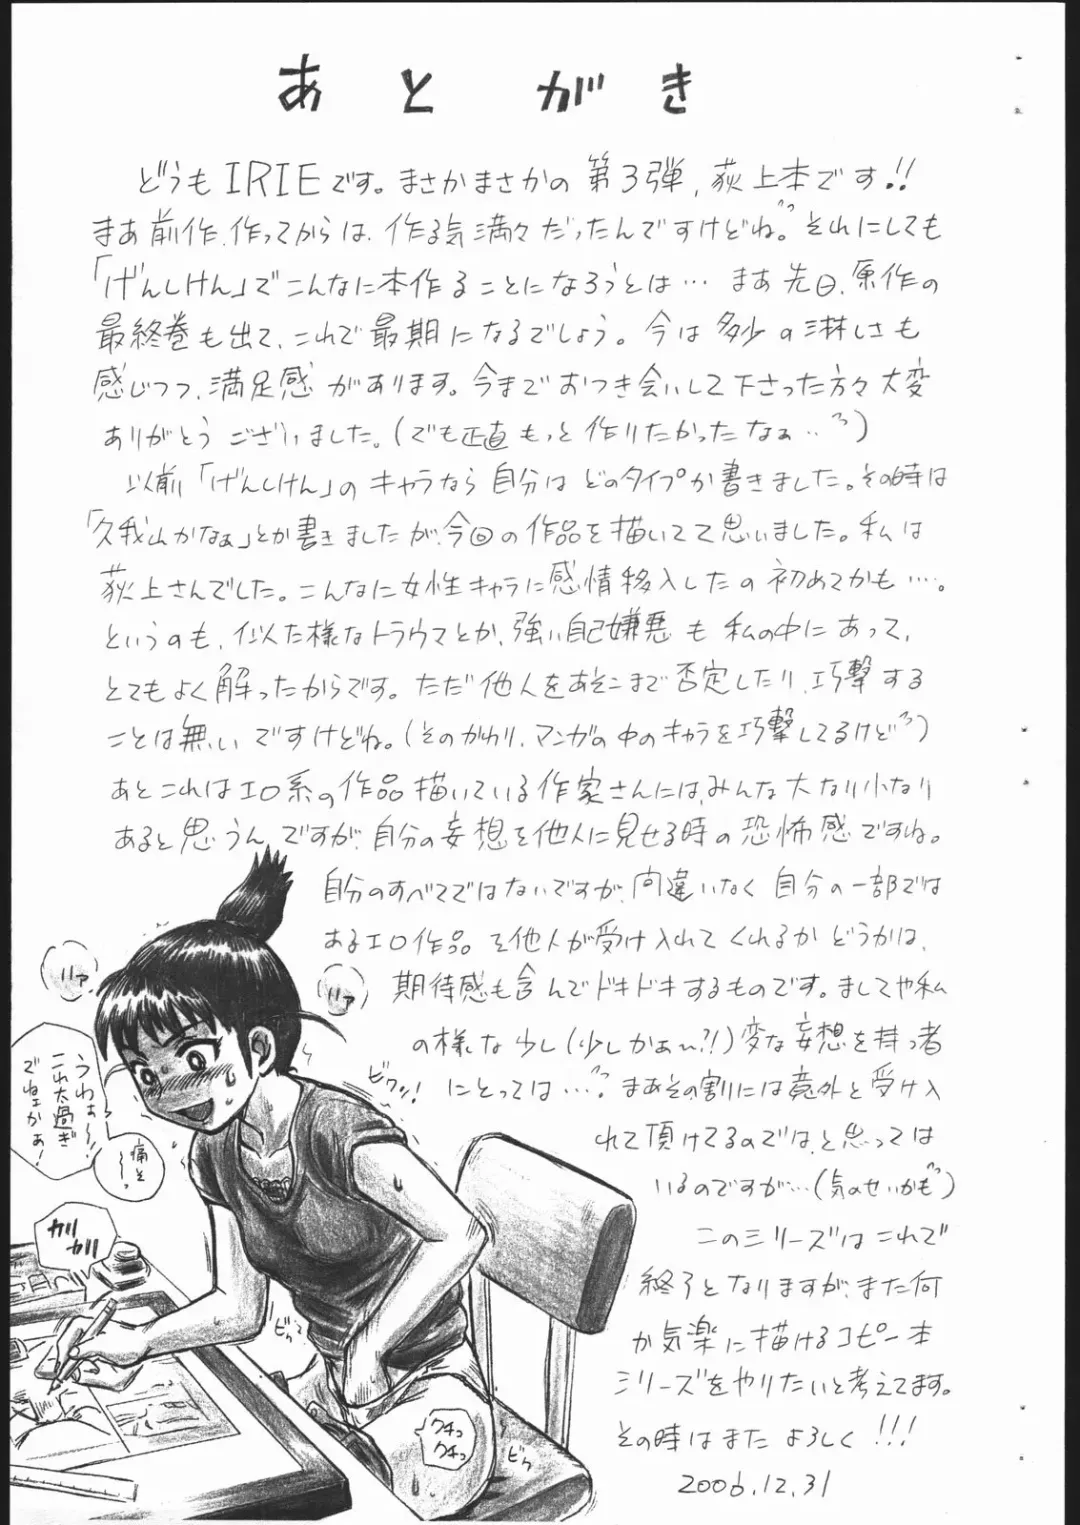 あとがき
どうもIRIEです。まさかまさかの第3弾,荻上本です!!
まあ前作、作ってからは、作る気満々だったんですけどね。それにしても
「げんしけん」でこんなに本作ることになろうとは…まあ先日、原作の
最終巻も出て、これで最期になるでしょう。今は多少の淋しさも
感じつつ、満足感があります。今までおつき会いして下さった方々大変
ありがとうございました。(でも正直もっと作りたかったなぁ…)
以前「げんしけん」のキャラなら自分はどのタイプか書きました。その時は
「久我山かなぁ」とか書きましたが、今回の作品を描いてて思いました。私は
荻上さんでした。こんなに女性キャラに感情移入したの初めてかも…。
というのも、似た様なトラウマとか、強い自己嫌悪も私の中にあって、
とてもよく解ったからです。ただ他人をあそこまで否定したり、攻撃する
ことは無いですけどね。(そのかわり、マンガの中のキャラを攻撃してるけど)
あとこれはエロ系の作品描いている作家さんには、みんな大なり小なり
あると思うんですが、自分の妄想を他人に見せる時の恐怖感ですね。
自分のすべてではないですが、間違いなく自分の一部では
あるエロ作品を他人が受け入れてくれるかどうかは、
期待感も含んでドキドキするものです。ましてや私
の様な少し(少しかぁ〜?!)変な妄想を持つ者
にとっては…。まあその割りには意外と受け入
れて頂けてるのでは、と思っては
いるのですが…(気のせいかも)
このシリーズはこれで
終了となりますが、また何
か気楽に描けるコピー本
シリーズをやりたいと考えてます。
その時はまたよろしく!!!
2006.12.31
ハァ
ハァ
うわぁ〜!
これ太過ぎ
でねェかぁ!
痛そ
〜っ
ビクッ!
カリ
カリ
ビクッ
クチュ
クチュ
ビクッ